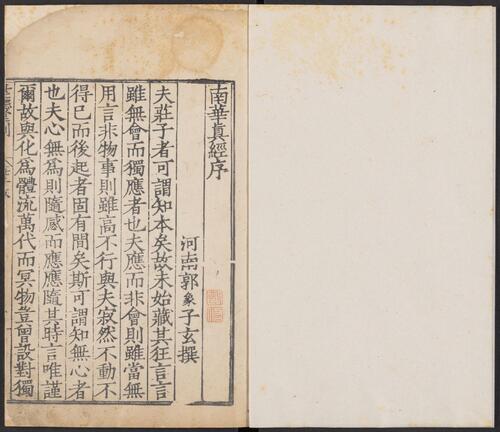 南華眞經序
河南郭象子玄撰
夫莊子者可謂知本矣故未始藏其狂言言
雖無會而獨應者也夫應而非會則雖當無
用言非物事則雖高不行與夫寂然不動不
得已而後起者固有間矣斯可謂知無心者
也夫心無爲則隨感而應應隨其時言唯謹
爾故與化爲體流萬代而冥物豈曾設對獨